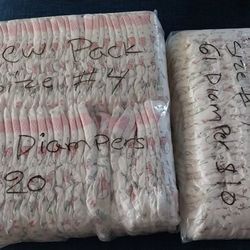 New Pack
Size #4
Diampers
20
Size #
61 Diamper $10